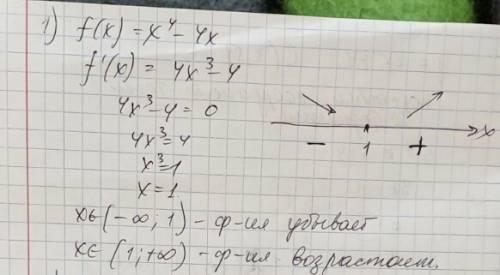 1) f(x) = x⁴ - 4x
f'(x) = 4x³ - 4
4x³ - 4 = 0
4x³ = 4
x³ = 1
x = 1
- 1 + x
x∈(-∞; 1) - ф-ия убывает
x∈ (1; +∞) - ф-ия возрастает.